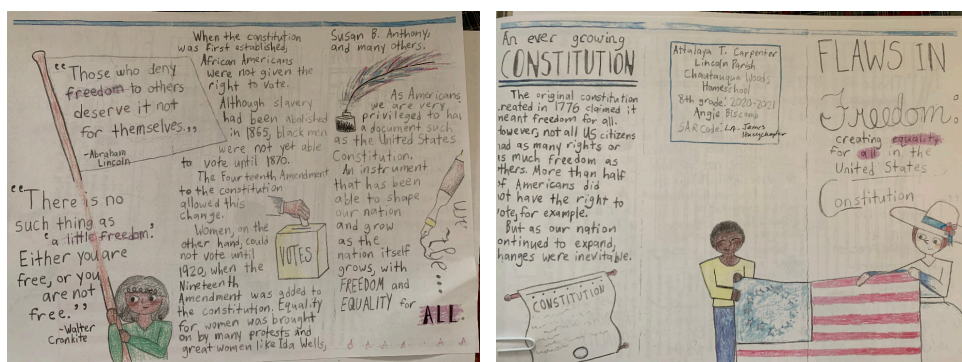 "Those who deny
freedom to others
deserve it not
for themselves."
-Abraham
Lincoln
"There is no
such thing as
'a little freedom.'
Either you are
free, or you
are not
free."
-Walter
Cronkite
When the constitution
was first established,
African Americans
were not given the
right to vote.
Although slavery
had been abolished
in 1865, black men
were not yet able
to vote until 1870.
The Fourteenth Amendment
to the constitution
allowed this
change.
Women, on the
other hand, could
not vote until
1920, when the
Nineteenth
Amendment was added to
the constitution. Equality
for women was brought
on by many protests and
great women like Ida Wells,
VOTES
Susan B. Anthony,
and many others.
As Americans
we are very
privileged to
a document such
as the United States
Constitution.
An instrument
that has been
able to shape
our nation
and grow
as the
nation itself
grows, with
FREEDOM and
EQUALITY for
ALL.
We
the...
An ever growing
CONSTITUTION
The original constitution
created in 1776 claimed it
meant freedom for all.
However, not all US citizens
had as many rights or
as much freedom as
others. More than half
of Americans did
not have the right to
vote, for example.
But as our nation
continued to expand,
changes were inevitable.
CONSTITUTION
Attalaya T. Carpenter
Lincoln Parish
Chautauqua Woods
Homeschool
8th grade: 2020-2021
Angie Biscomb
SAR Code: LA- James
FLAWS IN
Freedom:
creating equality
for all in the
United States
Constitution